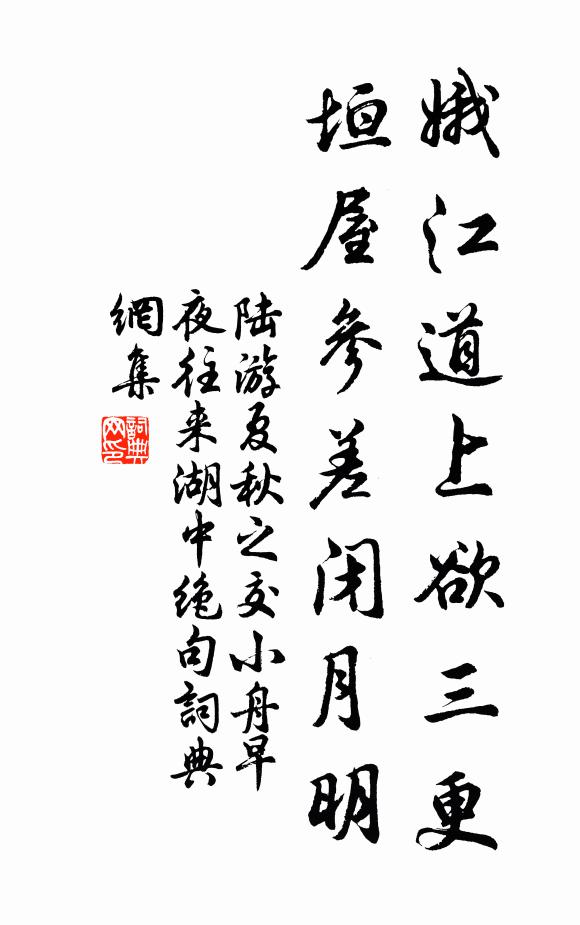 娥江道上欲三更
垣屋參差閉月明
陆游夏秋之交小舟早
夜往来湖中绝句詞典
網集
詞典網印